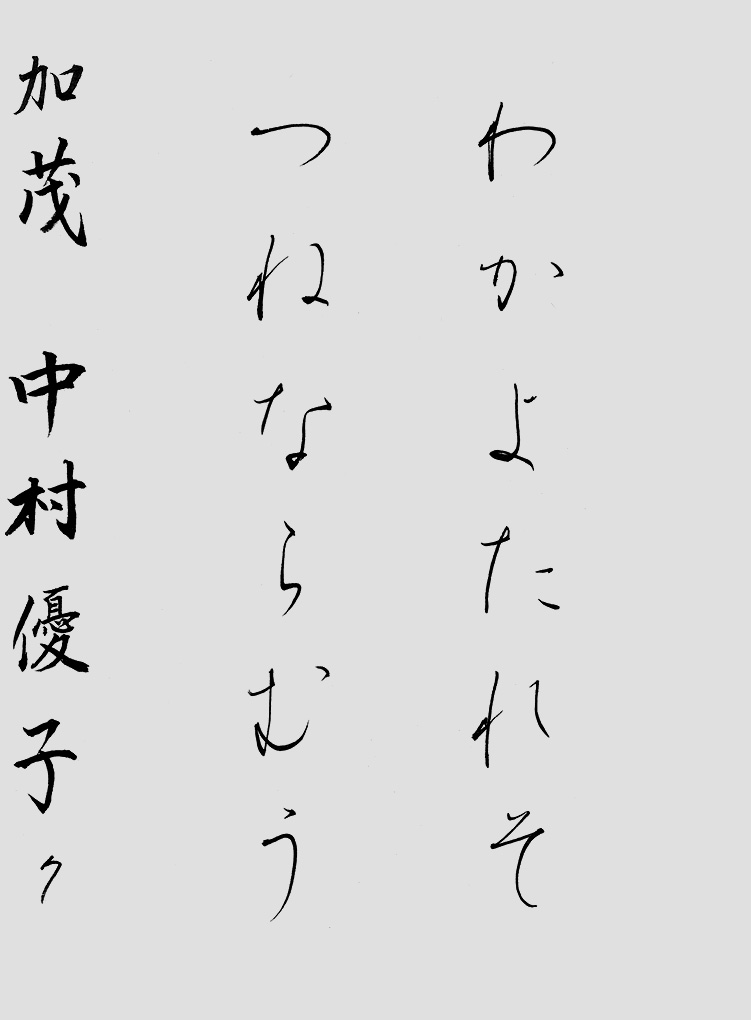 わかよたれそ
つねならむう
加茂 中村優子